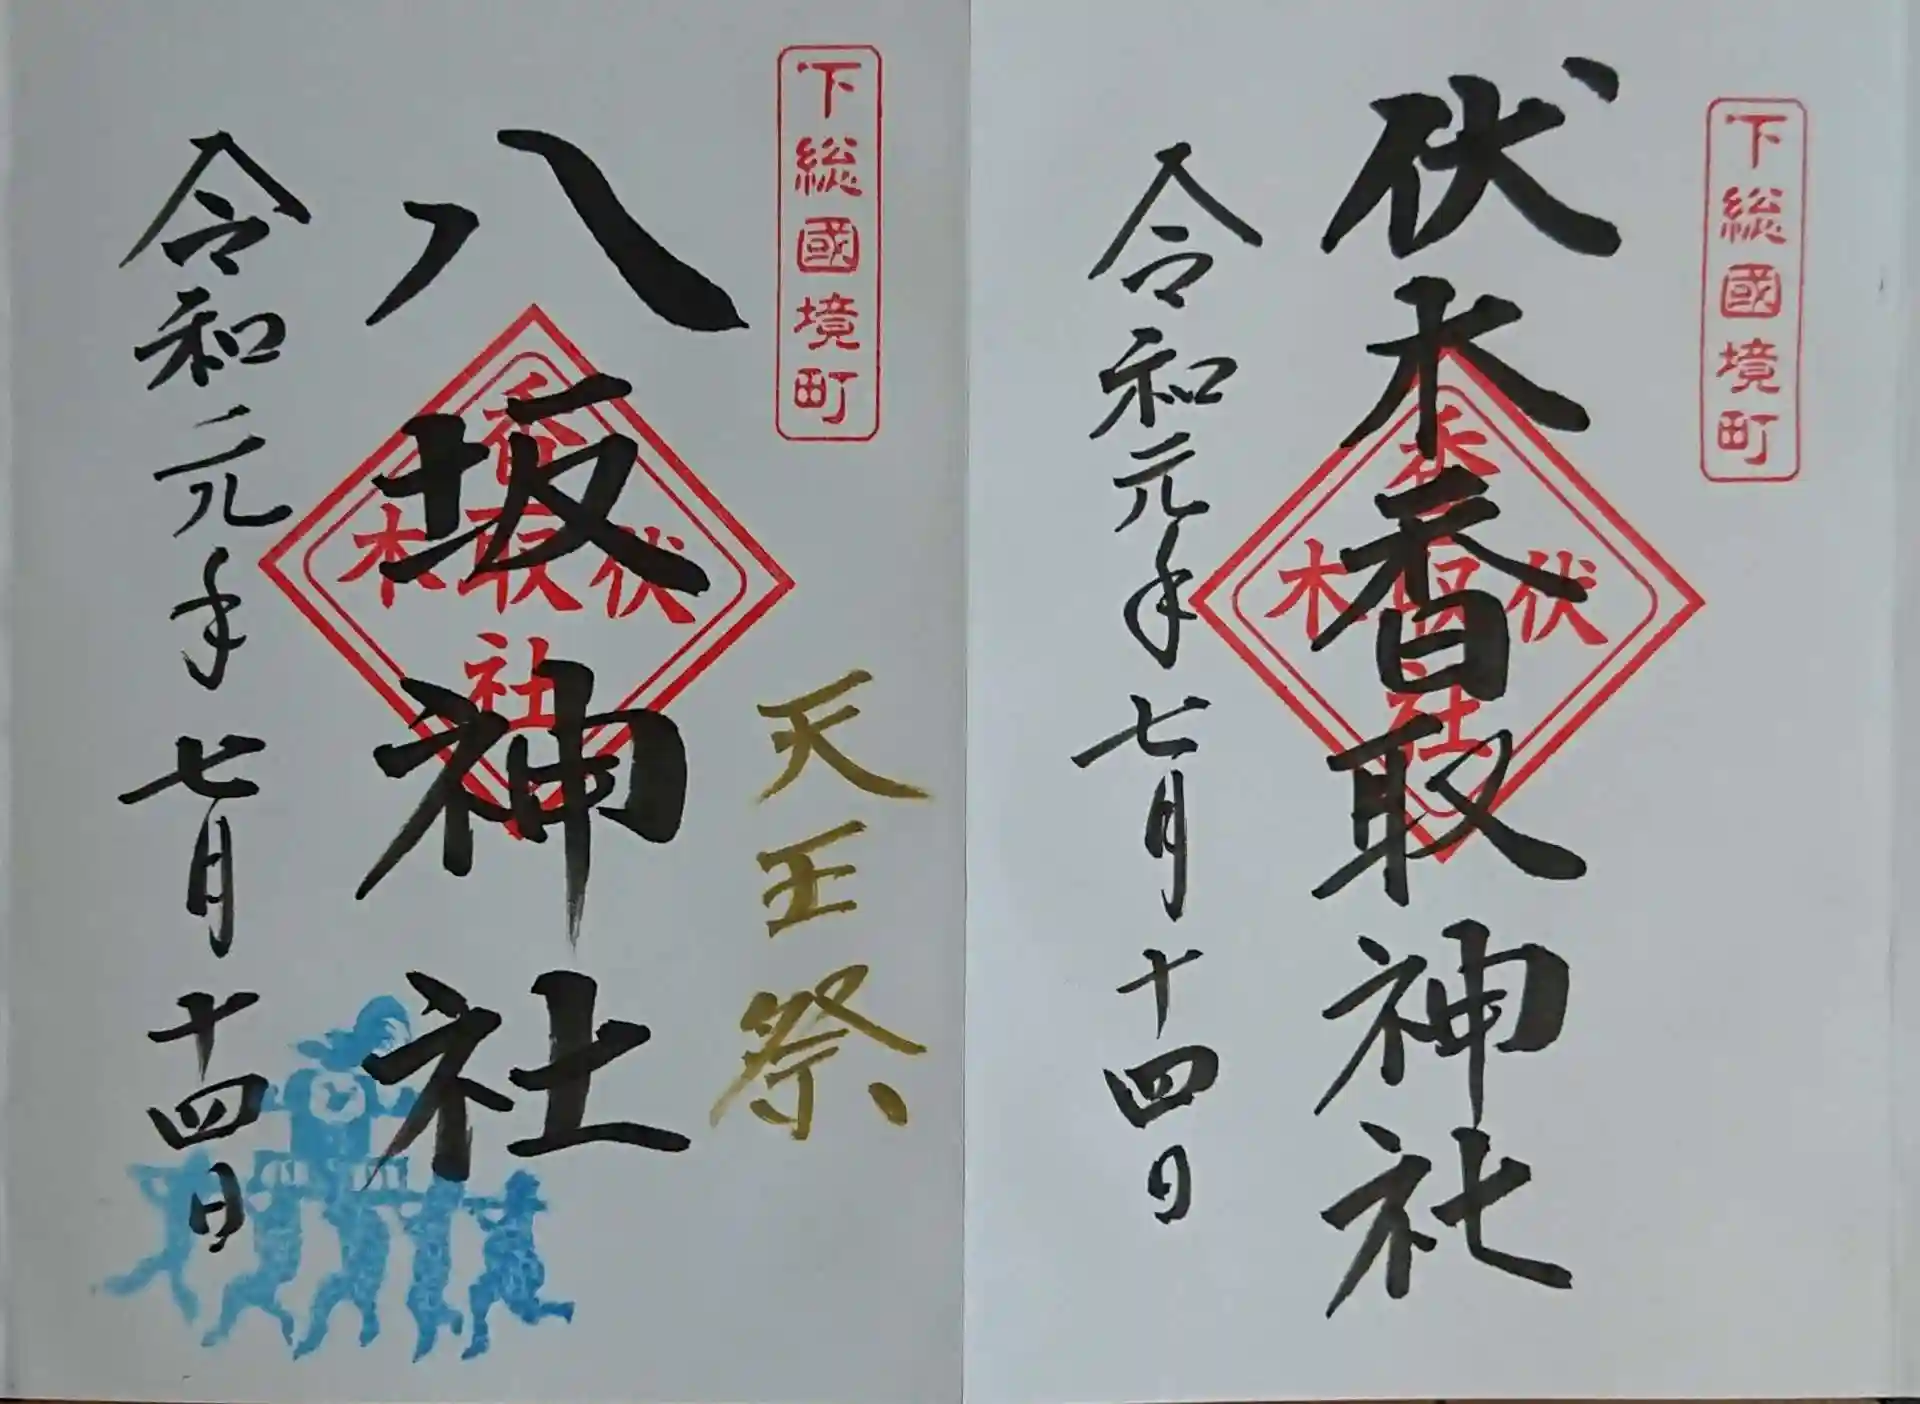 下総國境町
伏木香取神社
伏木
香取社
令和元年七月十四日
下総國境町
天王祭
八坂神社
伏木
香取社
令和元年七月十四日